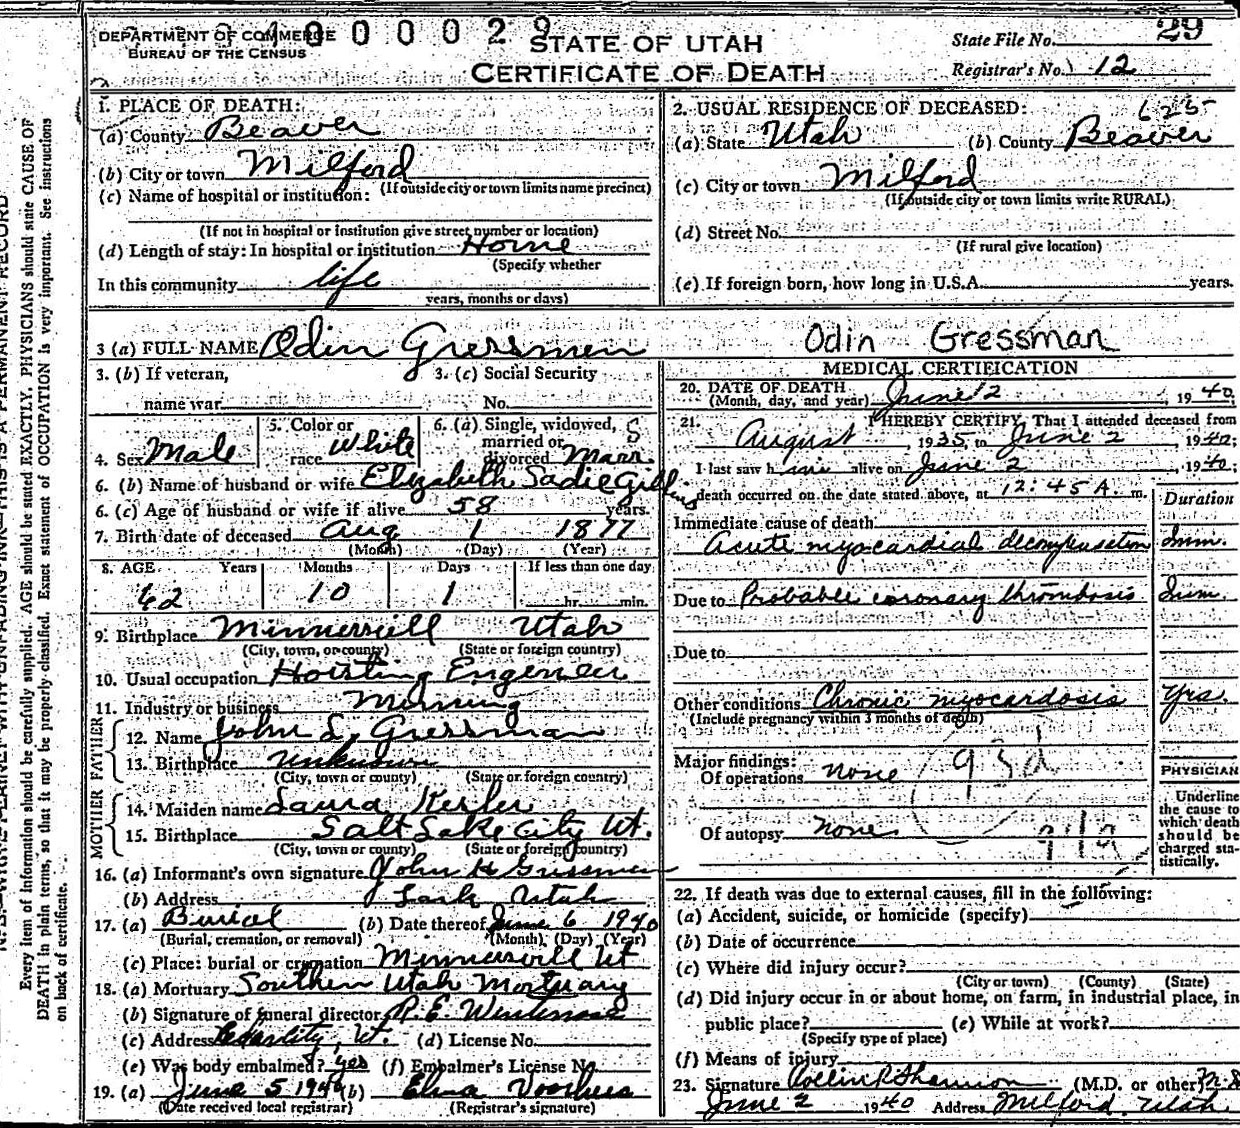 DEPARTMENT OF COMMERCE
BUREAU OF THE CENSUS
400029
STATE OF UTAH
CERTIFICATE OF DEATH
State File No. 29
Registrar's No. 12
1. PLACE OF DEATH:
(a) County Beaver
(b) City or town Milford
(If outside city or town limits name precinct)
(c) Name of hospital or institution:
(If not in hospital or institution give street number or location)
(d) Length of stay: In hospital or institution Home
(Specify whether
In this community life
years, months or days)
2. USUAL RESIDENCE OF DECEASED: 625
(a) State Utah (b) County Beaver
(c) City or town Milford
(If outside city or town limits write RURAL)
(d) Street No.
(If rural give location)
(e) If foreign born, how long in U.S.A. years.
3 (a) FULL NAME Odin Gressmen Odin Gressman
3. (b) If veteran, 3. (c) Social Security
name war No.
4. Sex Male 5. Color or race White 6. (a) Single, widowed, married or divorced Marr. S
6. (b) Name of husband or wife Elizabeth Sadie Gillins
6. (c) Age of husband or wife if alive 58 years.
7. Birth date of deceased Aug 1 1877
(Month) (Day) (Year)
8. AGE Years Months Days If less than one day
62 10 1 hr. min.
9. Birthplace Minnersvill Utah
(City, town, or county) (State or foreign country)
10. Usual occupation Hoisting Engeneer
11. Industry or business Minning
FATHER
12. Name John L Gressman
13. Birthplace Unknown
(City, town or county) (State or foreign country)
MOTHER
14. Maiden name Laura Kesler
15. Birthplace Salt Lake City Ut.
(City, town or county) (State or foreign country)
16. (a) Informant's own signature John H Gressmen
(b) Address Lark Utah
17. (a) Burial (b) Date thereof June 6 1940
(Burial, cremation, or removal) (Month) (Day) (Year)
(c) Place: burial or cremation Minnersvill Ut
18. (a) Mortuary Southern Utah Mortuary
(b) Signature of funeral director R. E.
(c) Address Cedar City, Ut. (d) License No.
(e) Was body embalmed? yes (f) Embalmer's License No.
19. (a) June 5 1940 (b) Elma Voorhees
(Date received local registrar) (Registrar's signature)
MEDICAL CERTIFICATION
20. DATE OF DEATH
(Month, day, and year) June 2, 1940
21. I HEREBY CERTIFY, That I attended deceased from
August 1935 to June 2 1940;
I last saw him alive on June 2, 1940;
death occurred on the date stated above, at 12:45 A. m.
Duration
Immediate cause of death
Acute myocardial decompensation Imm.
Due to Probable coronary thrombosis Imm.
Due to
Other conditions Chronic myocardosis Yrs.
(Include pregnancy within 3 months of death)
Major findings:
Of operations none 93d
Of autopsy none
PHYSICIAN
Underline the cause to which death should be charged statistically.
22. If death was due to external causes, fill in the following:
(a) Accident, suicide, or homicide (specify)
(b) Date of occurrence
(c) Where did injury occur?
(City or town) (County) (State)
(d) Did injury occur in or about home, on farm, in industrial place, in
public place? (e) While at work?
(Specify type of place)
(f) Means of injury
23. Signature Rollin P Shannon (M.D. or other)
June 2 1940 Address Milford, Utah.
Every item of Information should be carefully supplied. AGE should be stated EXACTLY. PHYSICIANS should state CAUSE OF
DEATH in plain terms, so that it may be properly classified. Exact statement of OCCUPATION is very important. See instructions
on back of certificate.